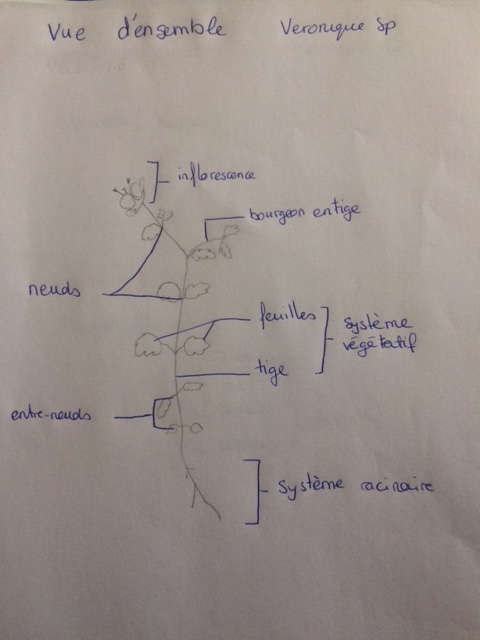 Vue d'ensemble Veronique Sp
inflorescence
bourgeon entige
neuds
feuilles
système
végétatif
tige
entre-neuds
système racinaire